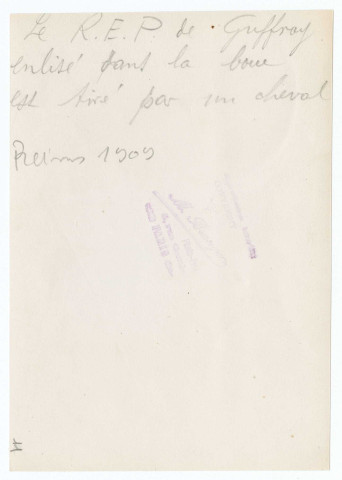 Le R.E.P. de Guffroy
enlisé dans la boue
est tiré par un cheval
Reims 1909